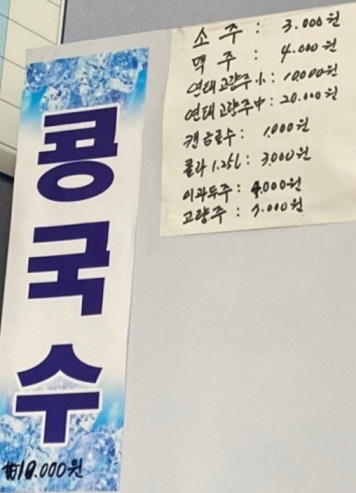 콩국수
₩10.000원
소 주 : 3.000원
맥 주 : 4.000원
연태고량주小 : 10.000원
연태고량주中 : 20.000원
캔음료수 : 1.000원
콜라 1.25L : 3.000원
이과두주 : 4.000원
고량주 : 5.000원